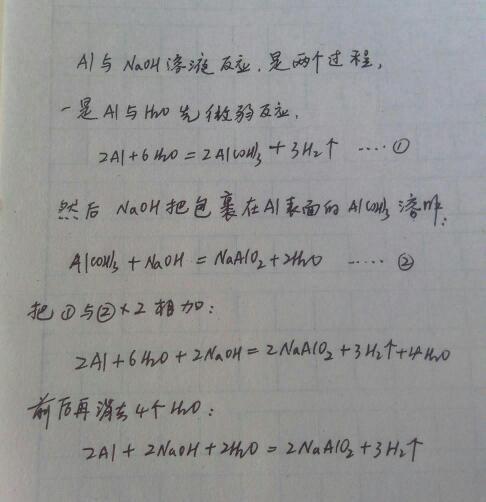 Al与NaOH溶液反应，是两个过程，
一是Al与H₂O先微弱反应，
2Al+6H₂O=2Al(OH)₃+3H₂↑ ……①
然后NaOH把包裹在Al表面的Al(OH)₃溶解：
Al(OH)₃+NaOH=NaAlO₂+2H₂O ……②
把①与②×2相加：
2Al+6H₂O+2NaOH=2NaAlO₂+3H₂↑+4H₂O
前后再消去4个H₂O：
2Al+2NaOH+2H₂O=2NaAlO₂+3H₂↑